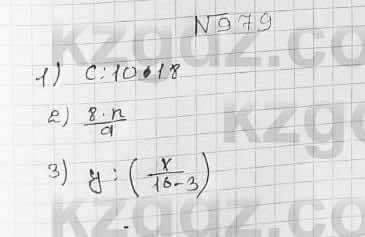 №979
1) c:10·18
2) 8·n/9
3) y:(x/16-3)
kzgdz.com
kzgdz.com
kzgdz.com